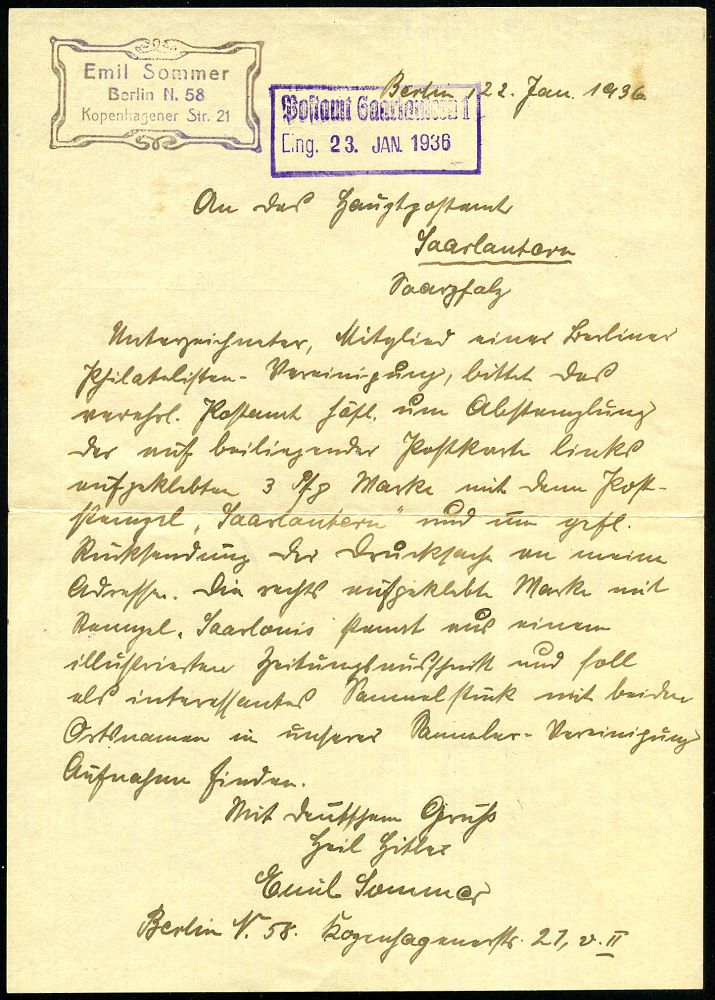 Emil Sommer
Berlin N. 58
Kopenhagener Str. 21
Postamt Saarlautern 1
Eing. 23. JAN. 1936
Berlin, 22. Jan. 1936
An das Hauptpostamt
Saarlautern
Saarpfalz
Unterzeichneter, Mitglied einer Berliner
Philatelisten-Vereinigung, bittet das
verehrl. Postamt höfl. um Abstempelung
der auf beiliegender Postkarte links
aufgeklebten 3 Pfg Marke mit dem Post-
stempel „Saarlautern" und um gefl.
Rücksendung der Drucksache an meine
Adresse. Die rechts aufgeklebte Marke mit
Stempel „Saarlouis stammt aus einem
illustrierten Zeitungsausschnitt und soll
als interessantes Sammelstück mit beiden
Ortsnamen in unserer Sammler-Vereinigung
Aufnahme finden.
Mit deutschem Gruß
Heil Hitler
Emil Sommer
Berlin N. 58. Kopenhagenerstr. 21, v. II